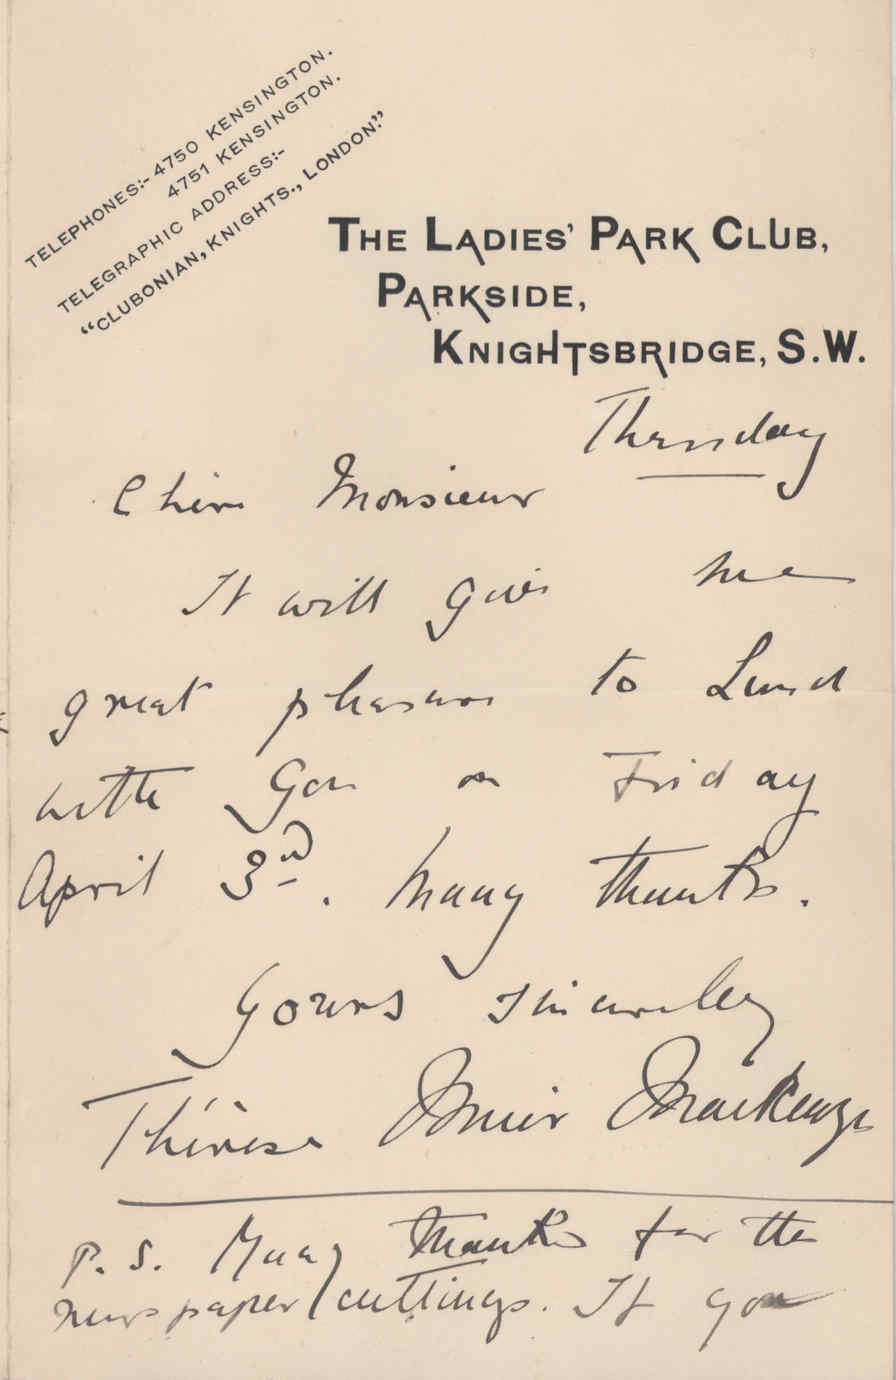 TELEPHONES:- 4750 KENSINGTON.
4751 KENSINGTON.
TELEGRAPHIC ADDRESS:-
"CLUBONIAN, KNIGHTS., LONDON."
THE LADIES' PARK CLUB,
PARKSIDE,
KNIGHTSBRIDGE, S.W.
Thursday
Cher Monsieur
It will give me
great pleasure to Lunch
with You on Friday
April 3rd. Many thanks.
Yours sincerely
Thérèse Muir Mackenzie
P.S. Many thanks for the
newspaper cuttings. If you